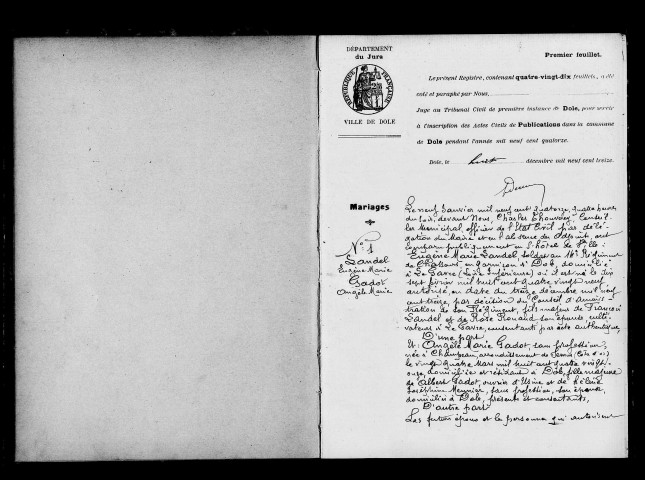 DÉPARTEMENT
du Jura
RÉPUBLIQUE FRANÇAISE
VILLE DE DOLE
Premier feuillet.
Le présent Registre, contenant quatre-vingt-dix feuillets, a été
coté et paraphé par Nous
Juge au Tribunal Civil de première instance de Dole, pour servir
à l'inscription des Actes Civils de Publications dans la commune
de Dole pendant l'année mil neuf cent quatorze.
Dole, le huit décembre mil neuf cent treize.
Mariages
N° 1
Landel
Eugène Marie
Gadot
Angèle Marie
Le neuf Janvier mil neuf cent quatorze, quatre heures
du soir, devant Nous, Charles Thouverey Conseil-
ler Municipal, officier de l'Etat Civil par délé-
gation du Maire et en l'absence des Adjoints, ont
comparu publiquement en l'hôtel de Ville :
Eugène Marie Landel, Soldat au Régiment
de Chasseurs, en garnison à Dole, domicilié
à Le Gavre (Loire Inférieure) où il est né le dix
sept février mil huit cent quatre vingt neuf
autorisé, en date du treize décembre mil neuf
cent treize, par décision du Conseil d'Adminis-
tration de son Régiment, fils majeur de François
Landel et de Rose Rouaud son épouse culti-
vateurs à Le Gavre, consentants par acte authentique,
D'une part
Et : Angèle Marie Gadot, sans profession,
née à Champeau, arrondissement de Semur (Côte d'or)
le vingt quatre Mars mil huit cent quatre vingt-
onze, domiciliée et résidant à Dole, fille majeure
de Albert Gadot, ouvrier d'Usine et de
Joséphine Meunier, sans profession, son épouse,
domiciliés à Dole, présents et consentants,
D'autre part
Les futurs époux et les personnes qui autorisent